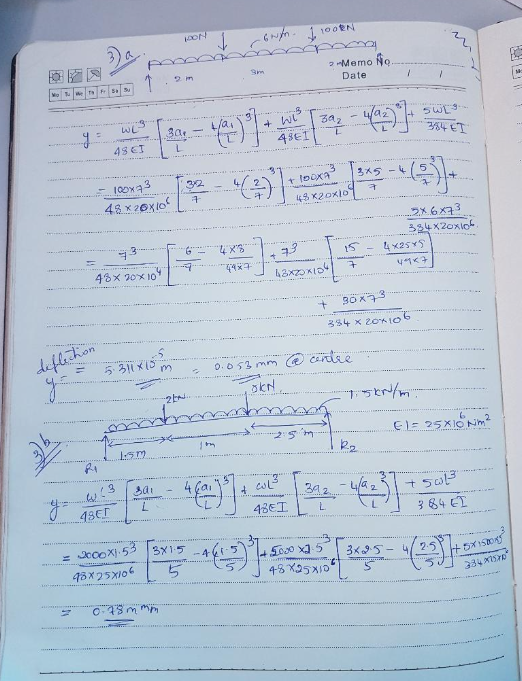 3) a.
100N 6N/m. 100N
2 m 3m 2 m
Memo No.
Date / /
Mo Tu We Th Fr Sa Su
y = WL³/48EI [3a₁/L - 4(a₁/L)³] + WL³/48EI [3a₂/L - 4(a₂/L)³] + 5WL³/384EI
= 100×7³/48×20×10⁶ [3×2/7 - 4(2/7)³] + 100×7³/48×20×10⁶ [3×5/7 - 4(5/7)³] +
5×6×7³/384×20×10⁶
= 7³/48×20×10⁴ [6/7 - 4×8/49×7] + 7³/48×20×10⁴ [15/7 - 4×25×5/49×7]
+ 30×7³/384×20×10⁶
deflection
y = 5.311×10⁻⁵ m = 0.053mm @ centre
3) b
2kN 5kN 1.5kN/m.
1.5m 1m 2.5m EI = 25×10⁶ Nm²
R₁ R₂
y = WL³/48EI [3a₁/L - 4(a₁/L)³] + WL³/48EI [3a₂/L - 4(a₂/L)³] + 5WL³/384EI
= 2000×1.5³/48×25×10⁶ [3×1.5/5 - 4(1.5/5)³] + 5000×2.5³/48×25×10⁶ [3×2.5/5 - 4(2.5/5)³] + 5×1500×5³/384×25×10⁶